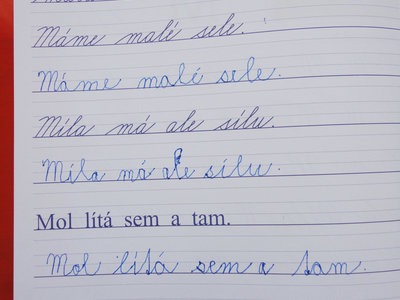 Máme malé sele.
Máme malé sele.
Míla má ale sílu.
Míla má ale sílu.
Mol lítá sem a tam.
Mol lítá sem a tam.